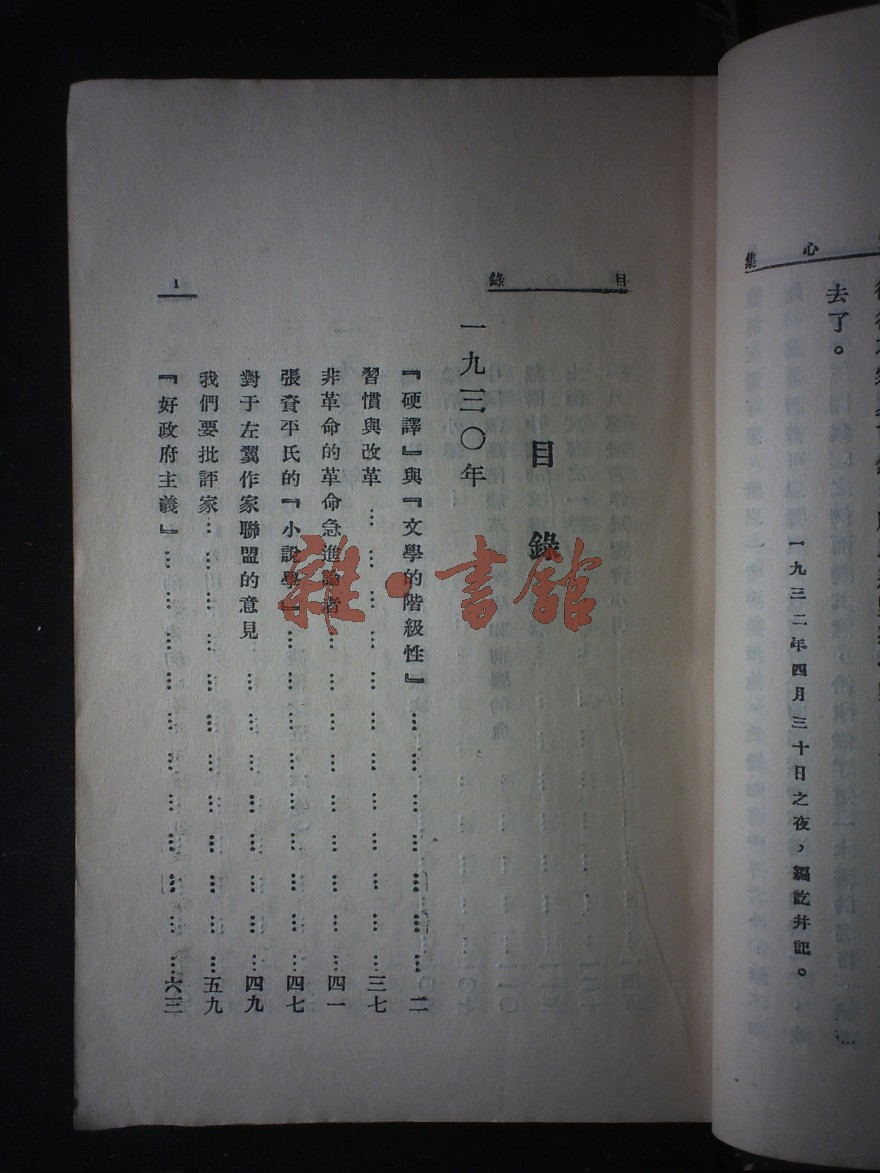 心集
去了。
一九三二年四月三十日之夜，編訖幷記。
目錄
1
目錄
一九三〇年
『硬譯』與『文學的階級性』…………………二
習慣與改革…………………三七
非革命的革命急進論者…………………四一
張資平氏的『小說學』…………………四七
對于左翼作家聯盟的意見…………………四九
我們要批評家…………………五九
『好政府主義』…………………六三
雜·書館